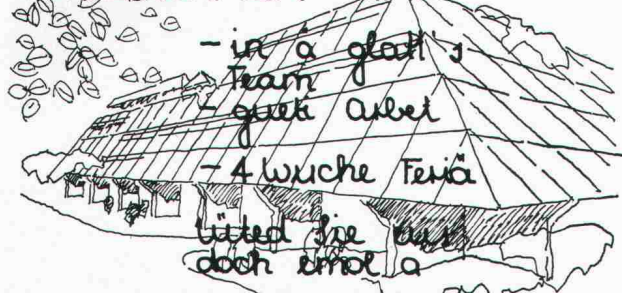 - in ä glatt's
Team
- gueti Arbet
- 4 Wuche Feriä
Lüted Sie eus
doch emol a